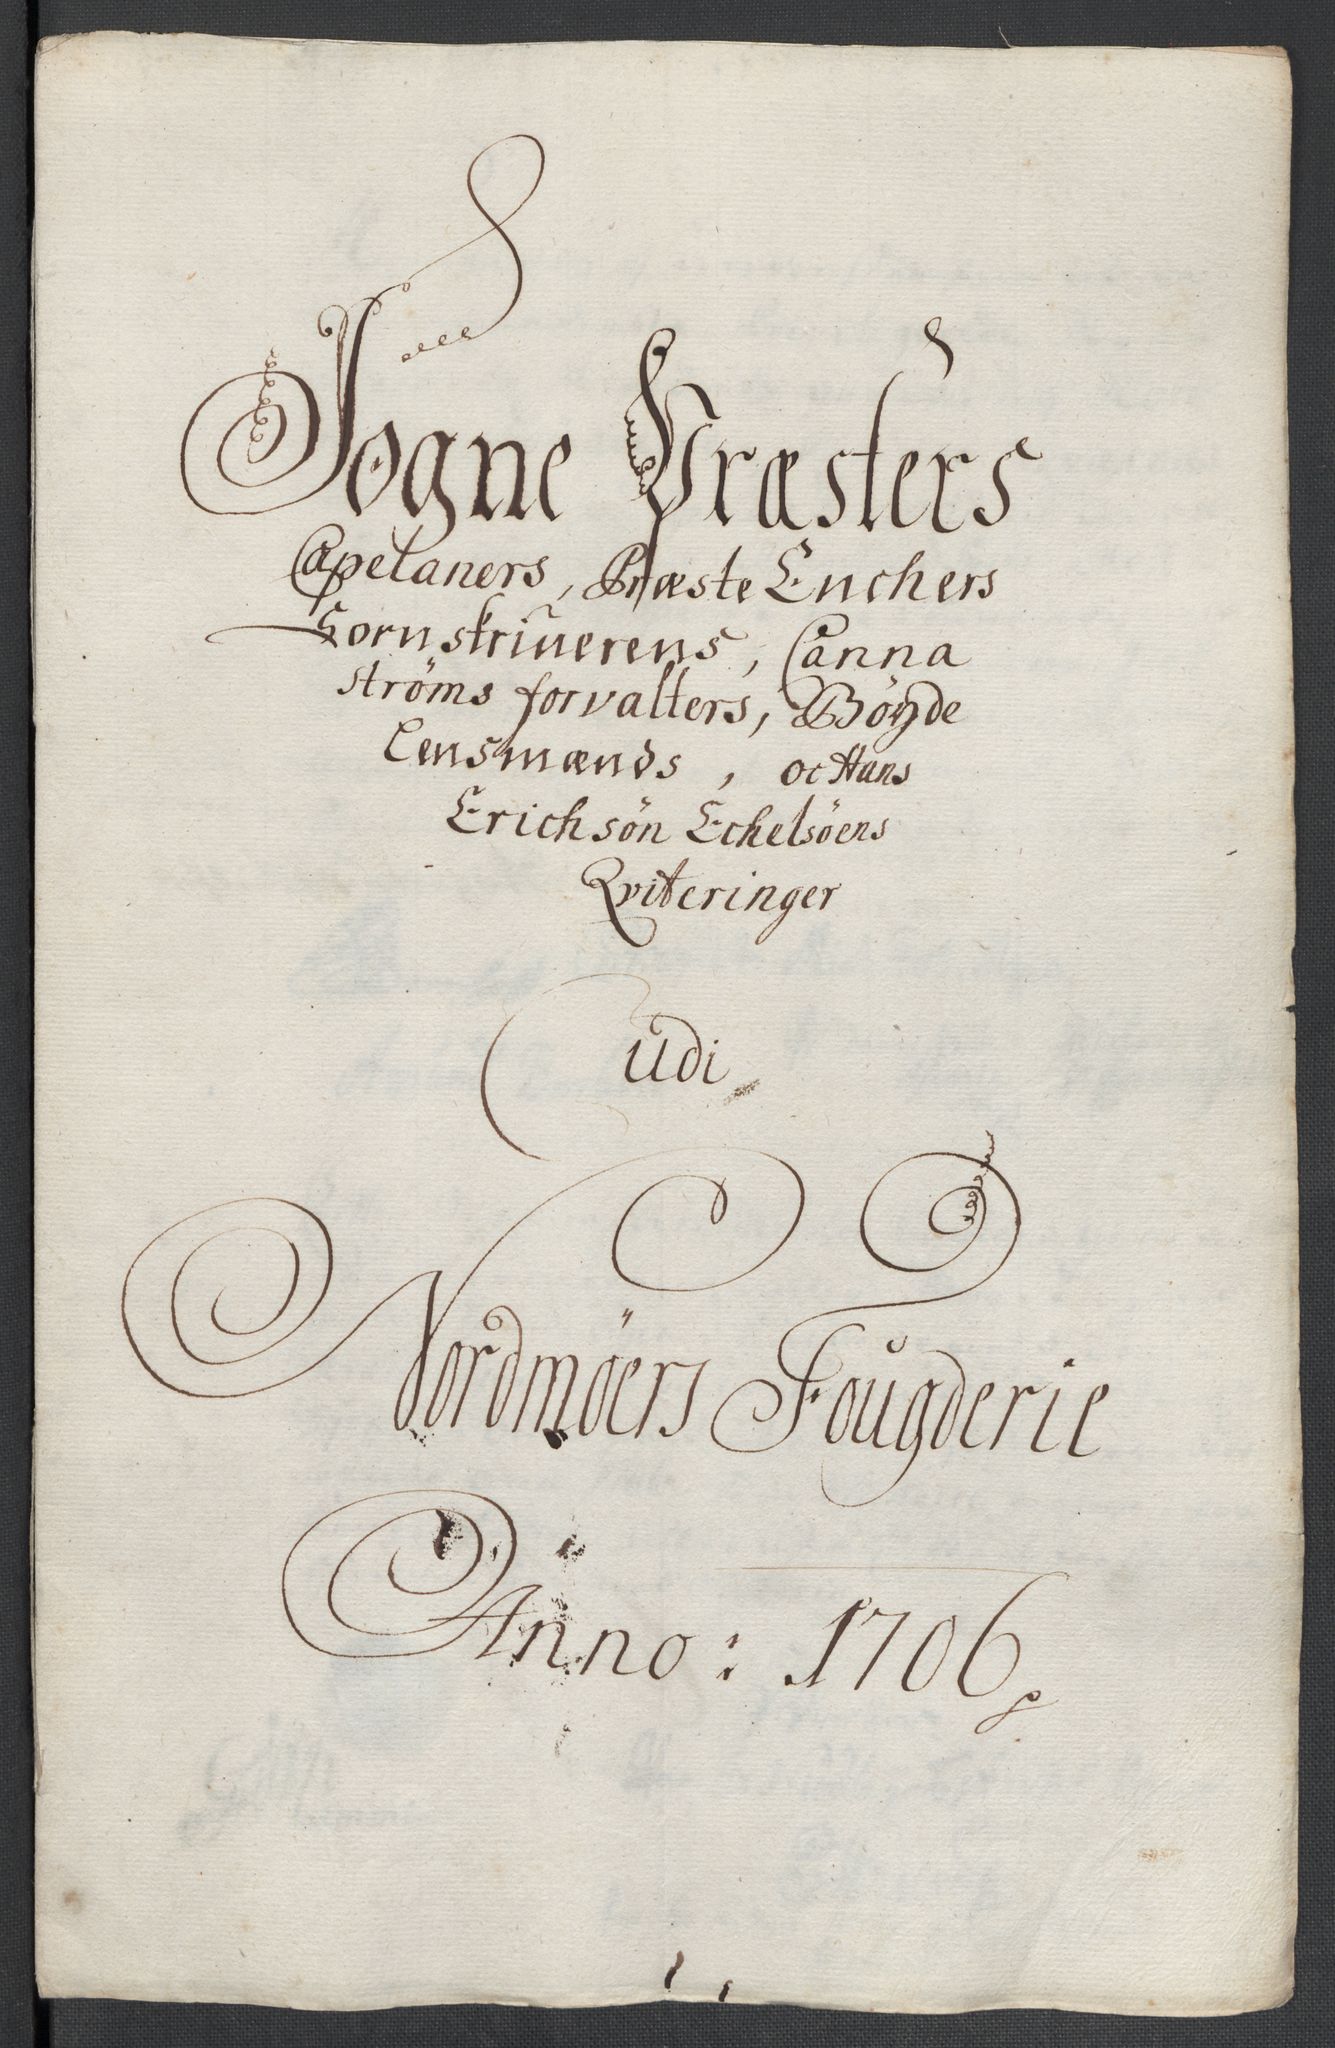 Sogne Præsters
Capelaners, Præste Enchers
Sornskriuerens, Canna
ströms forvalters, Böyde
Lensmænds, oc Hans
Erichsön Echelsöens
Qviteringer
udi
Nordmöers Fougderie
Anno: 1706